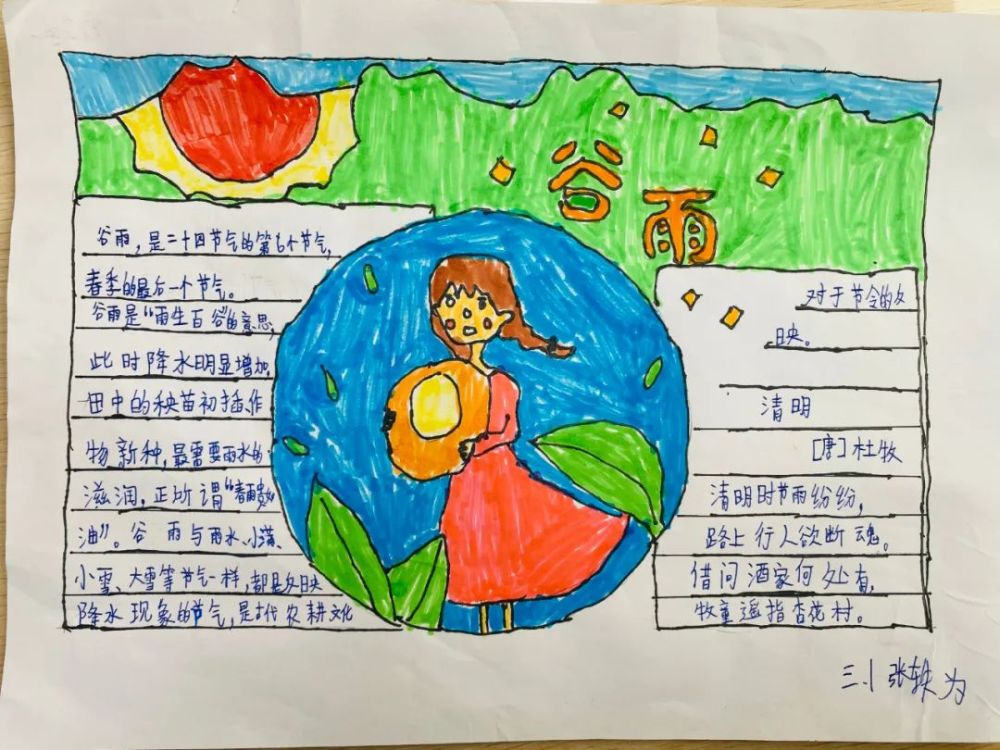 谷雨
谷雨，是二十四节气的第六个节气，
春季的最后一个节气。
谷雨是“雨生百谷”的意思，
此时降水明显增加。
田中的秧苗初插，作
物新种，最需要雨水的
滋润，正所谓“春雨贵如
油”。谷雨与雨水、小满、
小雪、大雪等节气一样，都是反映
降水现象的节气，是古代农耕文化
对于节令的反
映。
清明
［唐］杜牧
清明时节雨纷纷，
路上行人欲断魂。
借问酒家何处有，
牧童遥指杏花村。
三.1 张轶为